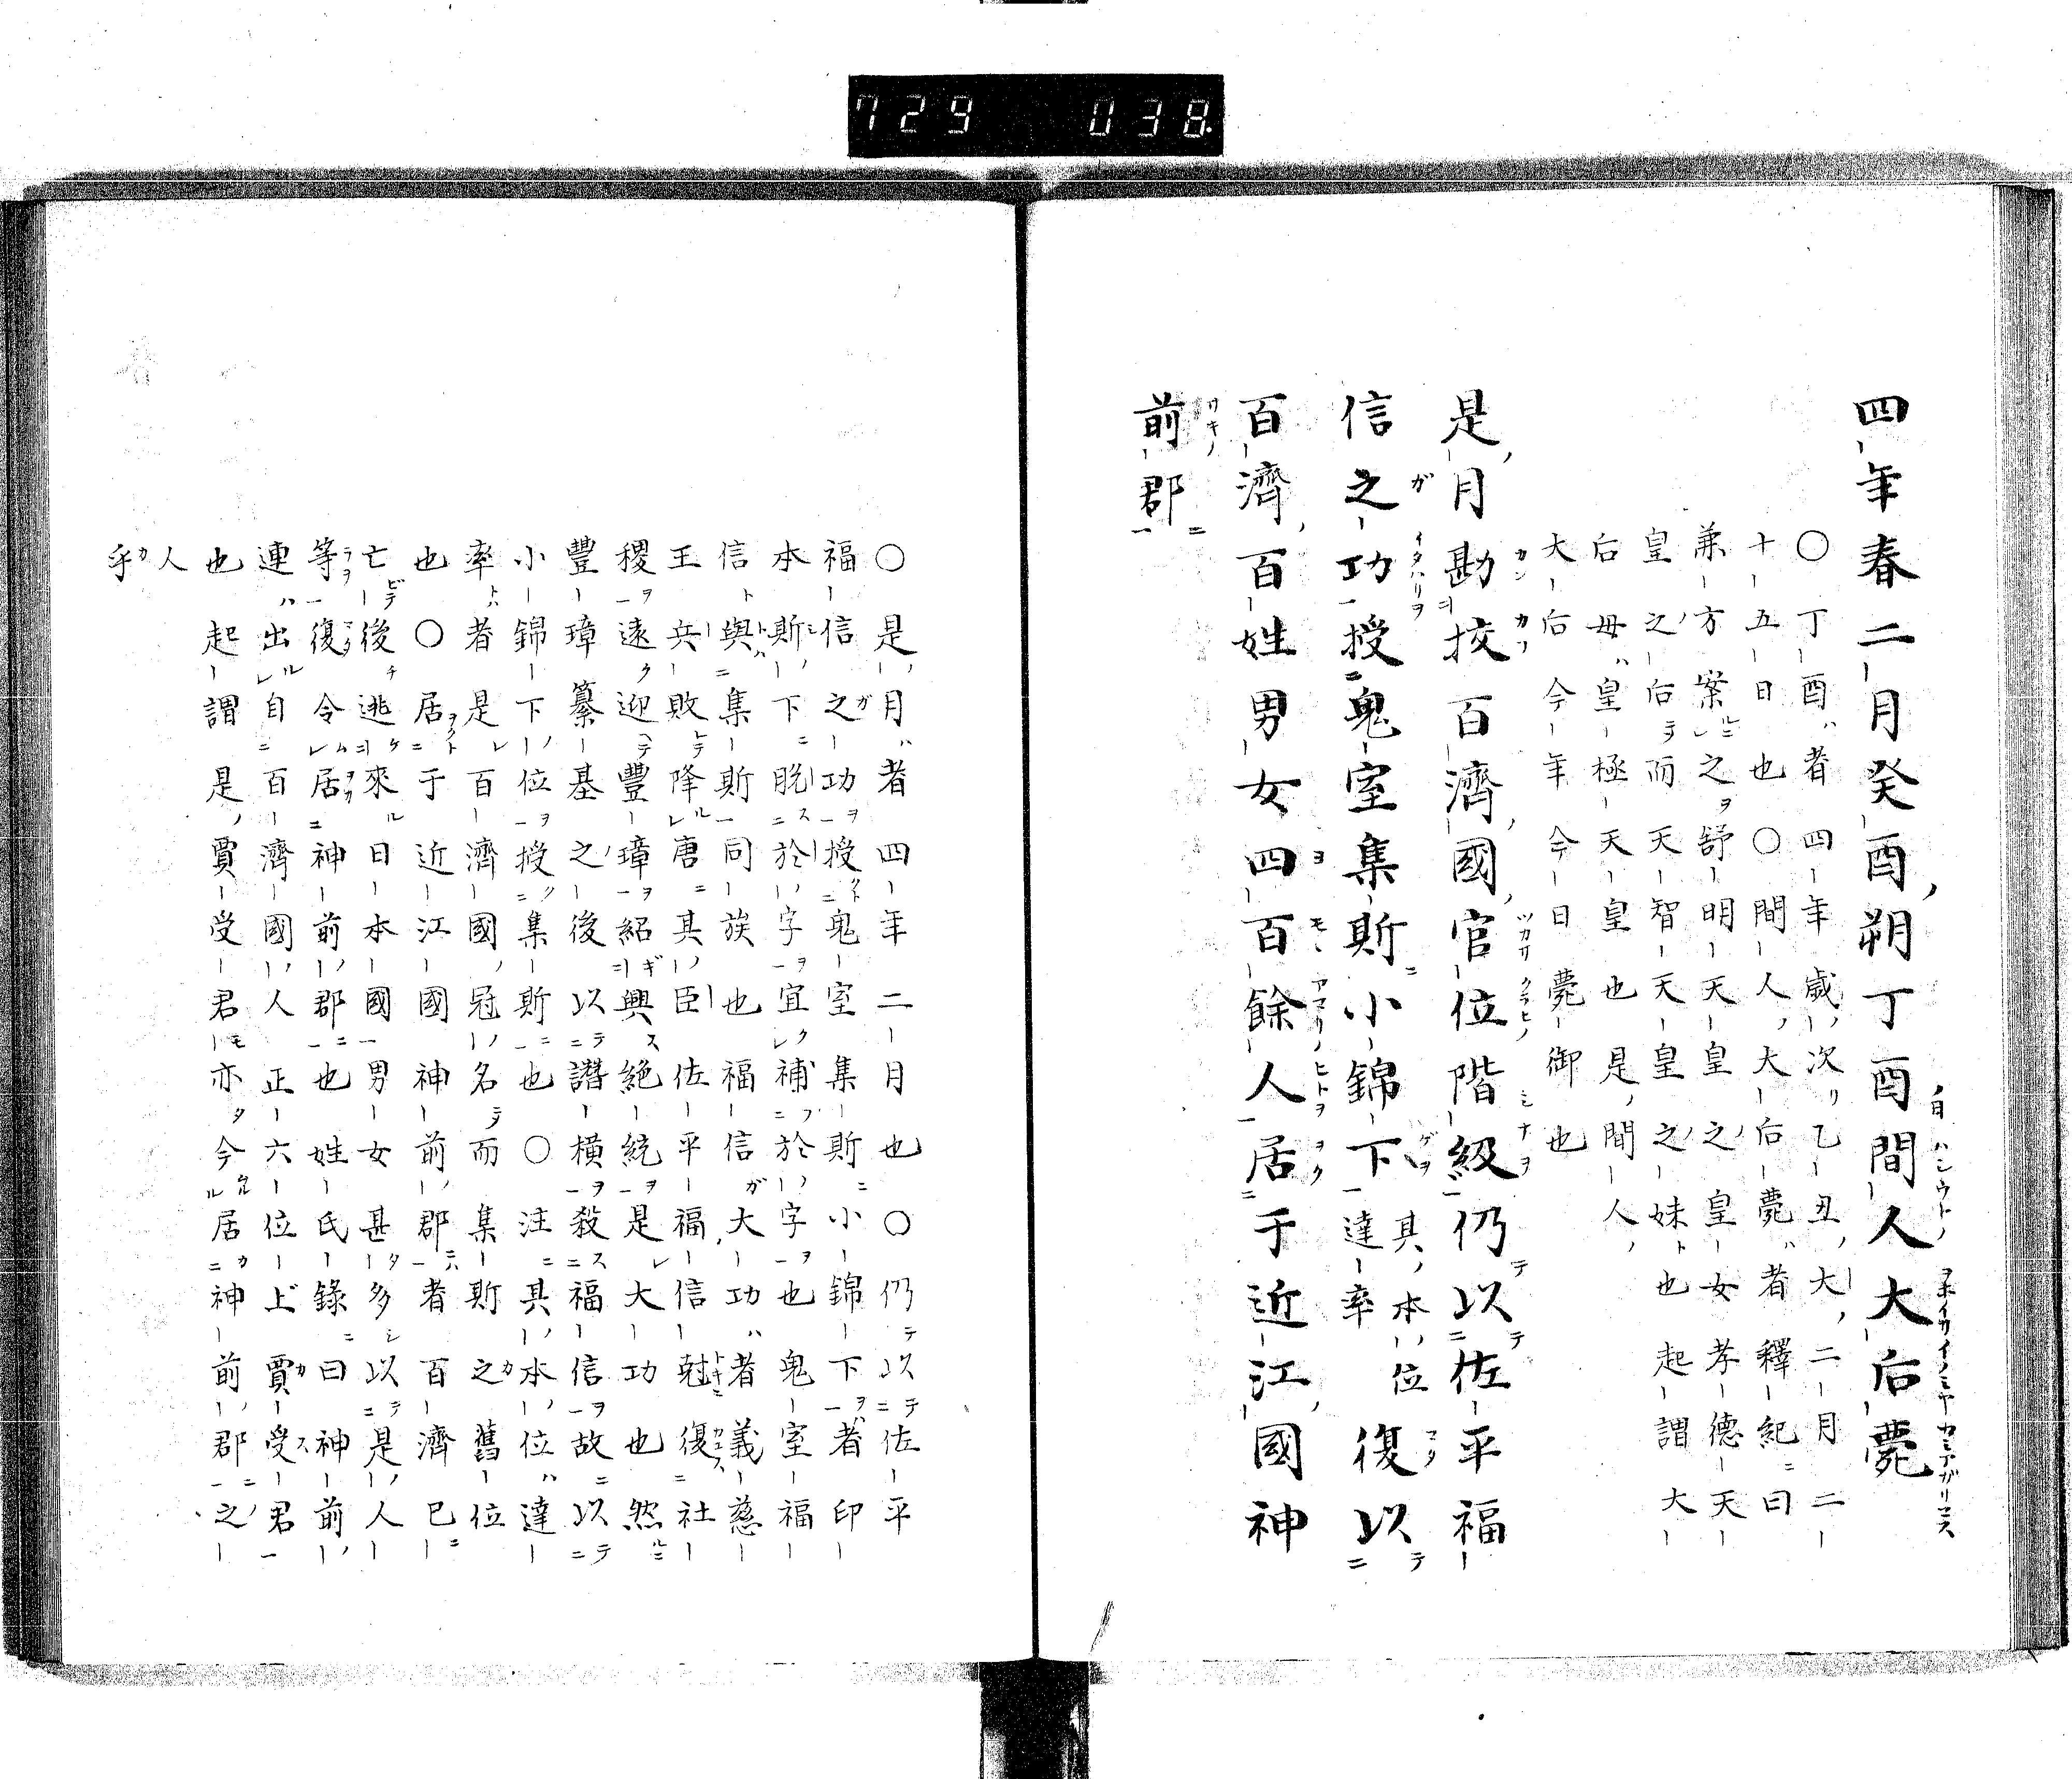 729 038
四年春二月癸酉朔丁酉間人大后薨
〇丁酉者四年歲次乙丑大二月二
十五日也〇間人大后薨者釋紀曰
兼方案之舒明天皇之皇女孝德天
皇之后而天智天皇之妹也起謂大
后母皇極天皇也是間人
大后今年今日薨御也
是月勘挍百濟國官位階級仍以佐平福
信之功授鬼室集斯小錦下其本位達率復以
百濟百姓男女四百餘人居于近江國神
前郡
〇是月者四年二月也〇仍以佐平
福信之功授鬼室集斯小錦下者印
本斯下脱於字宜補於字也鬼室福
信與集斯同族也福信大功者義慈
王兵敗降唐其臣佐平福信尅復社
稷遠迎豐璋紹興絶統是大功也然
豐璋纂基之後以譖横殺福信故以
小錦下位授集斯也〇注其本位達
率者是百濟國冠名而集斯之舊位
也〇居于近江國神前郡者百濟已
亡後逃來日本國男女甚多以是人
等復令居神前郡也姓氏錄曰神前
連出自百濟國人正六位上賈受君
也起謂是賈受君亦今居神前郡之
人乎